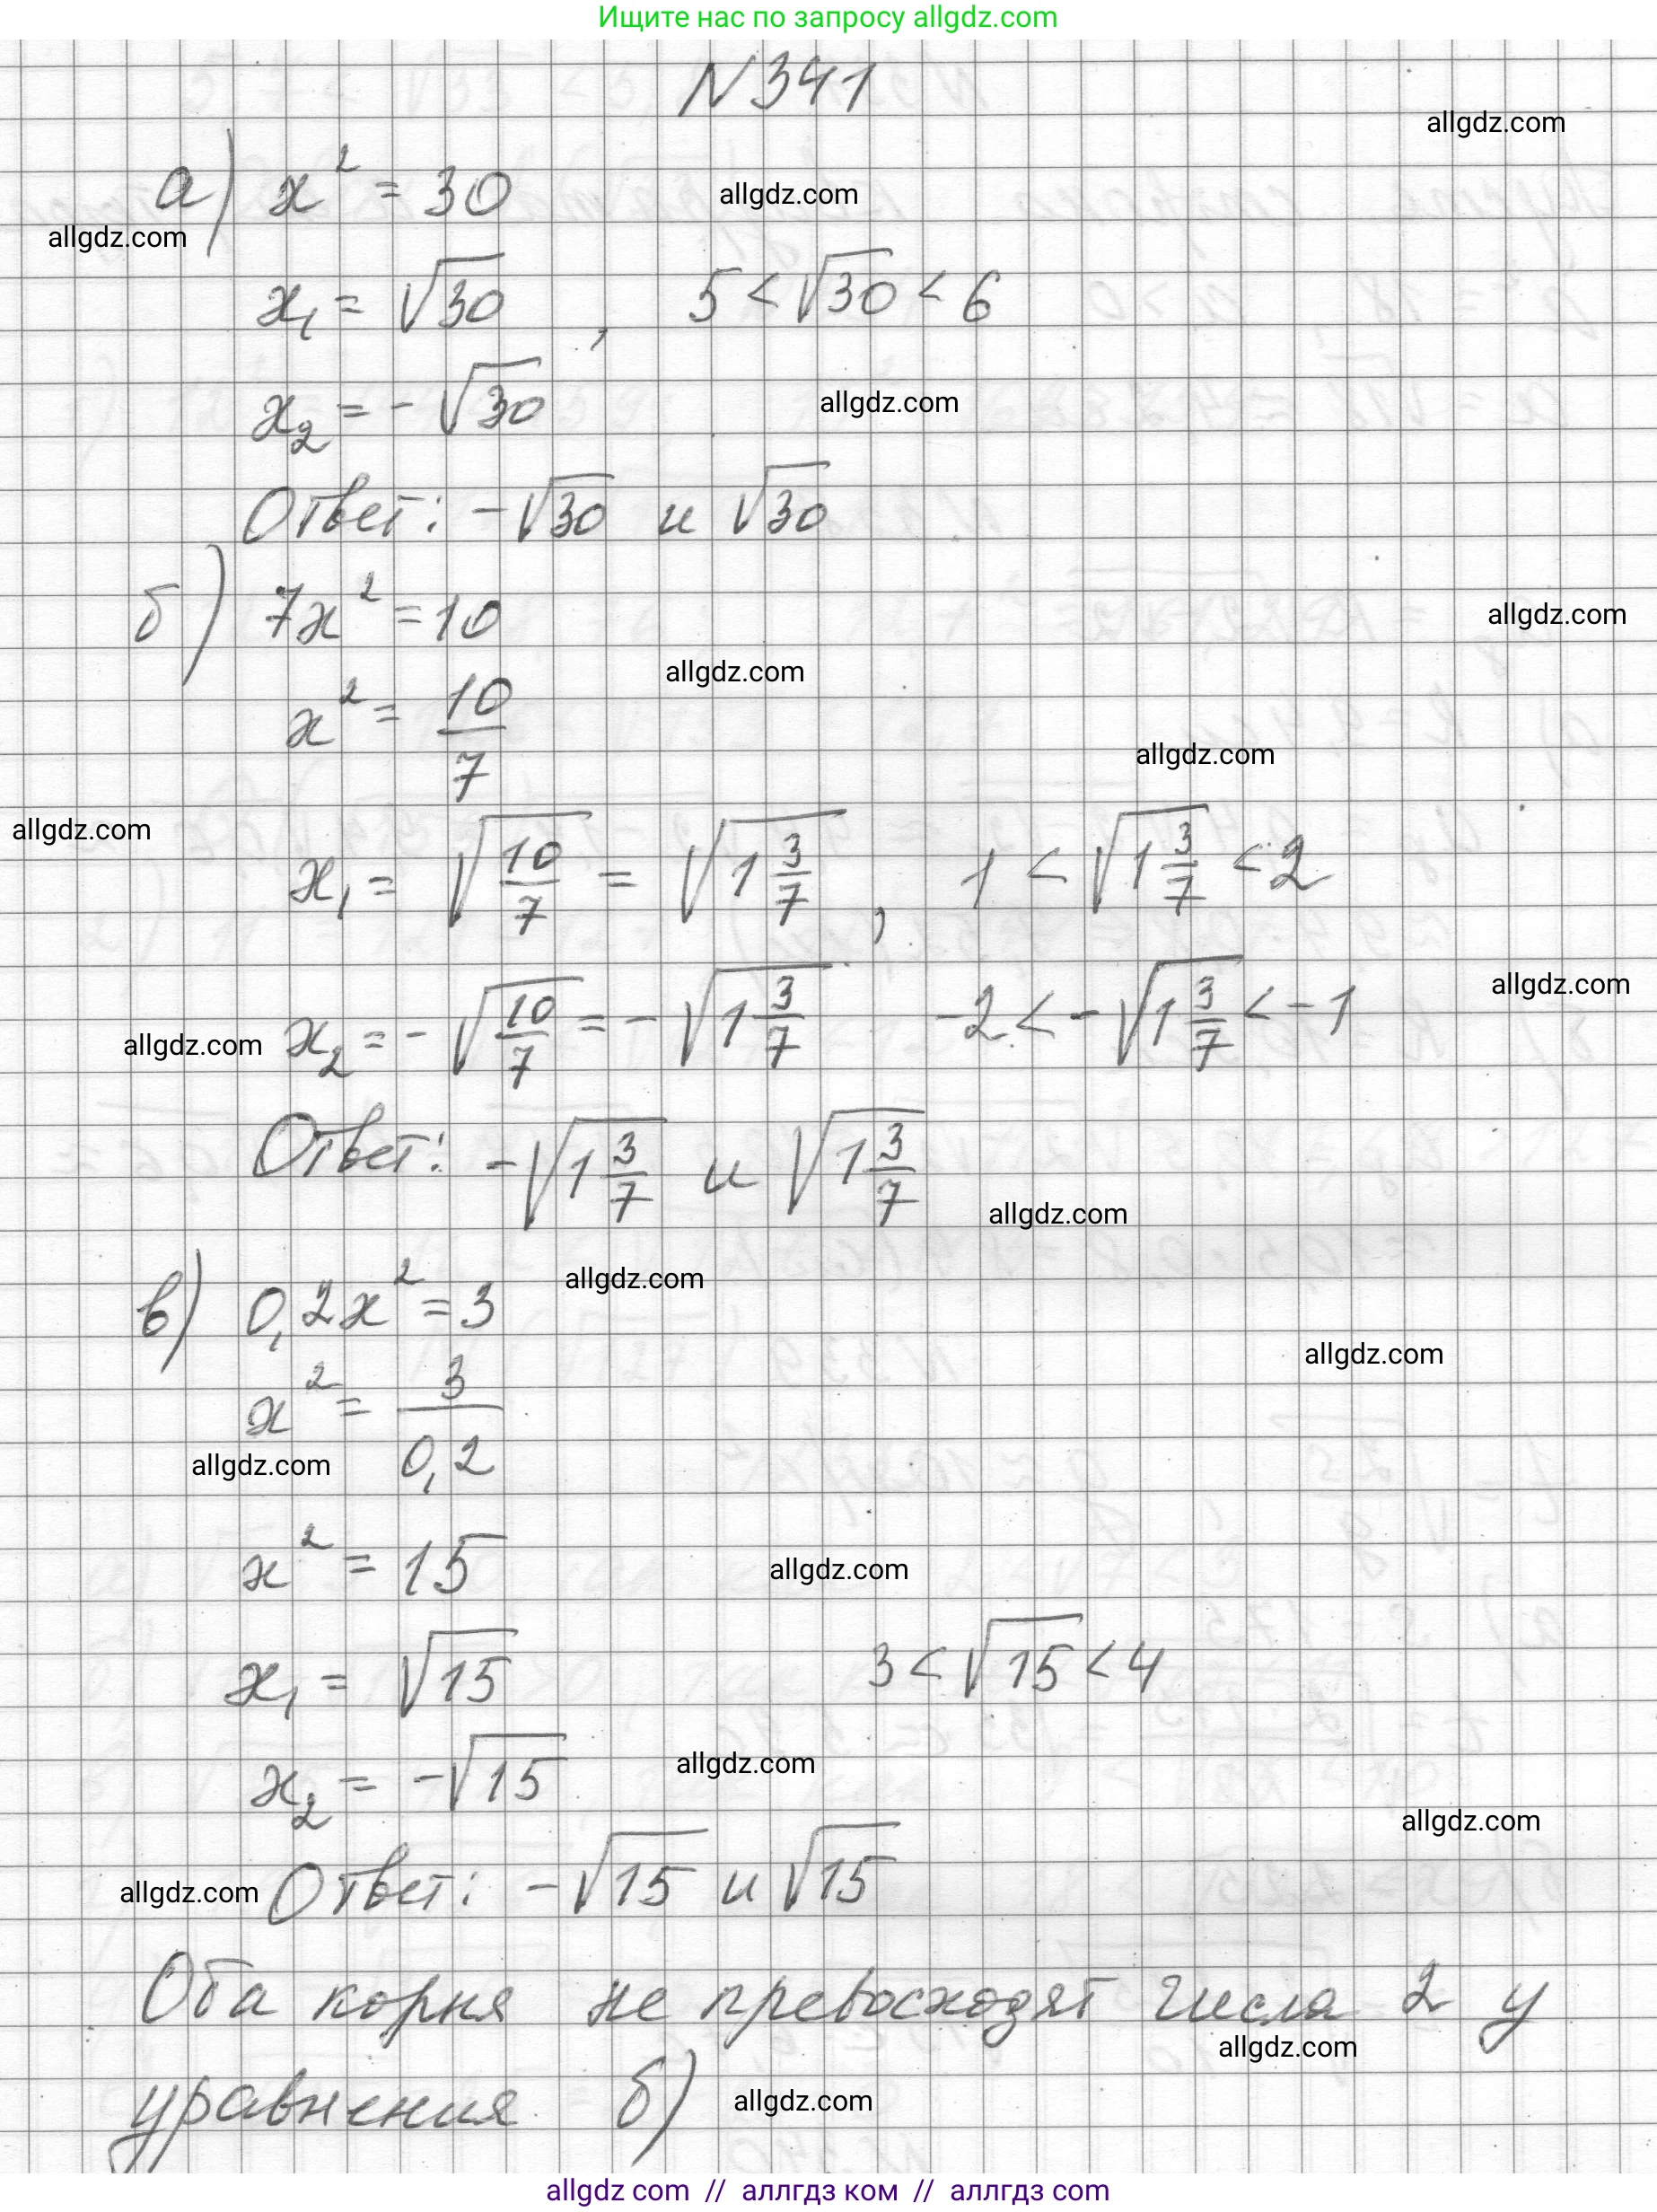 Ищите нас по запросу allgdz.com
N341
allgdz.com
а) x² = 30
allgdz.com
allgdz.com
x₁ = √30 , 5 < √30 < 6
x₂ = - √30
allgdz.com
Ответ: -√30 и √30
б) 7x² = 10
allgdz.com
allgdz.com
x² = 10/7
allgdz.com
allgdz.com
x₁ = √(10/7) = √(1 3/7) , 1 < √(1 3/7) < 2
allgdz.com
allgdz.com
x₂ = - √(10/7) = - √(1 3/7) -2 < - √(1 3/7) < -1
Ответ: -√(1 3/7) и √(1 3/7)
allgdz.com
allgdz.com
в) 0,2x² = 3
allgdz.com
x² = 3/0,2
allgdz.com
x² = 15
allgdz.com
x₁ = √15 3 < √15 < 4
allgdz.com
x₂ = -√15
allgdz.com
allgdz.com
Ответ: -√15 и √15
Оба корня не превосходят числа 2 у
allgdz.com
уравнения б)
allgdz.com
allgdz com // аллгдз ком // аллгдз com